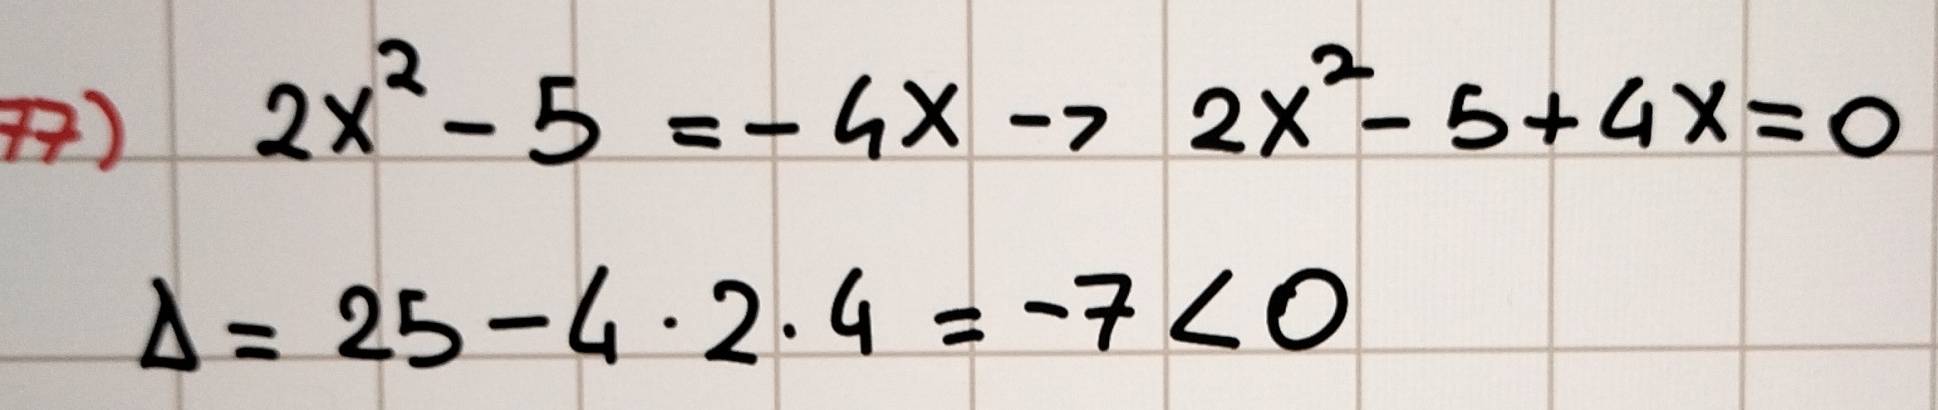 77) 2x² - 5 = - 4x -> 2x² - 5 + 4x = 0
Δ = 25 - 4 · 2 · 4 = -7 < 0